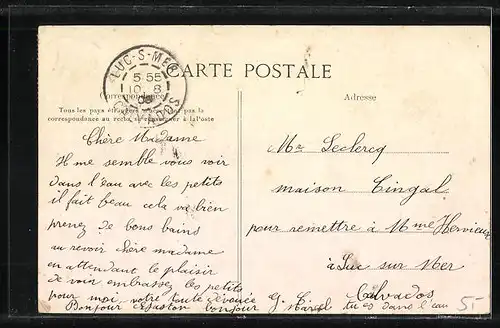 LUC-S-MER
5 55
10 8
CALVADOS
CARTE POSTALE
Correspondance
Tous les pays étrangers pas la
correspondance au recto, se renseigner à la Poste
Chère Madame
Il me semble vous voir
dans l'eau avec les petits
il fait beau cela va bien
prenez de bons bains
au revoir chère madame
en attendant le plaisir
de voir embassez les petits
pour moi votre toute dévouée
Bonjour Gaston bonjour
G. Marcel tu es dans l'eau
Adresse
Mr Leclercq
maison Tingal
pour remettre à Mme Hervieux
à Luc sur Mer
Calvados
5-